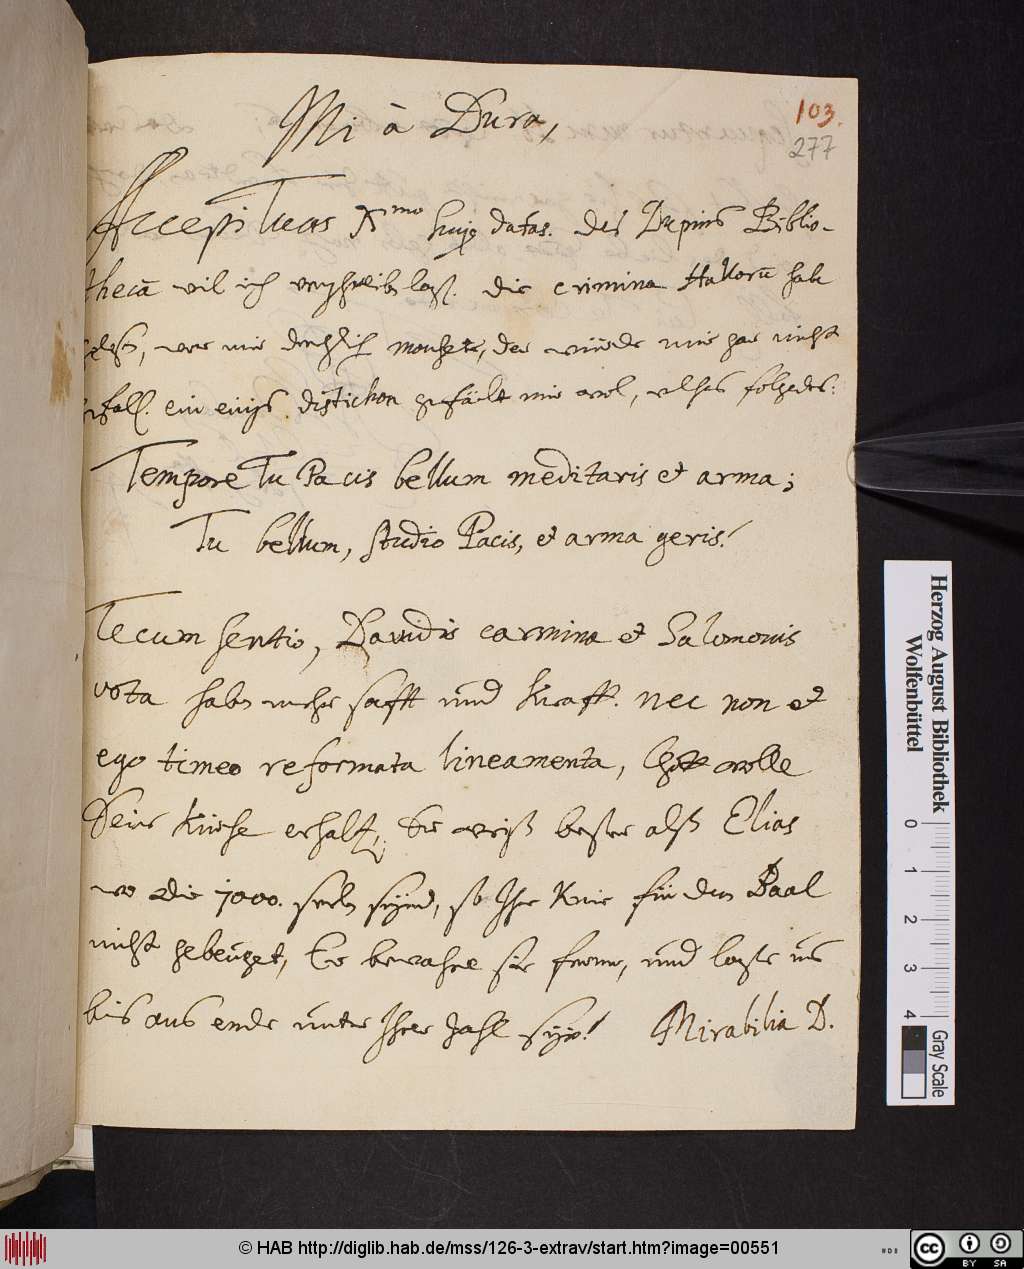 Mi à Dura,
103.
277
Accepi Tuas X.mo hujq datas. des Dupins Biblio-
thecã wil ich verschreiben laßen. die crimina Hattoru habe
wer mir wünschet, der würde mir gar nicht
gefallen. ein einigs distichon gefält mir wol, welches folgendes:
Tempore Tu Pacis bellum meditaris et arma;
Tu bellum, studio Pacis, et arma geris!
Tecum sentio, Davidis carmina et Salomonis
vota haben mehr safft und krafft. nec non et
ego timeo reformata lineamenta, Gott wolle
Seine Kirche erhalten, Er weiß beßer alß Elias
wo die 7000. seelen seynd, so Ihre Knie für den Baal
nicht gebeuget, Er bewahre sie ferner, und laße uns
bis ans ende unter Ihrer zahl seyn! Mirabilia D.
Herzog August Bibliothek
Wolfenbüttel
0 1 2 3 4
Gray Scale
© HAB http://diglib.hab.de/mss/126-3-extrav/start.htm?image=00551
cc BY SA